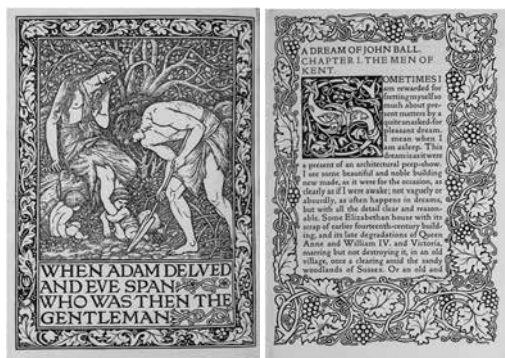 WHEN ADAM DELVED
AND EVE SPAN
WHO WAS THEN THE
GENTLEMAN
A DREAM OF JOHN BALL.
CHAPTER I. THE MEN OF
KENT.
SOMETIMES I
am rewarded for
fretting myself so
much about pre-
sent matters by a
quite unasked-for
pleasant dream.
I mean when I
am asleep. This
dream is as it were
a present of an architectural peep-show.
I see some beautiful and noble building
new made, as it were for the occasion, as
clearly as if I were awake; not vaguely or
absurdly, as often happens in dreams,
but with all the detail clear and reason-
able. Some Elizabethan house with its
scrap of earlier fourteenth-century build-
ing, and its late degradations of Queen
Anne and William IV. and Victoria,
marring but not destroying it, in an old
village, once a clearing amid the sandy
woodlands of Sussex. Or an old and